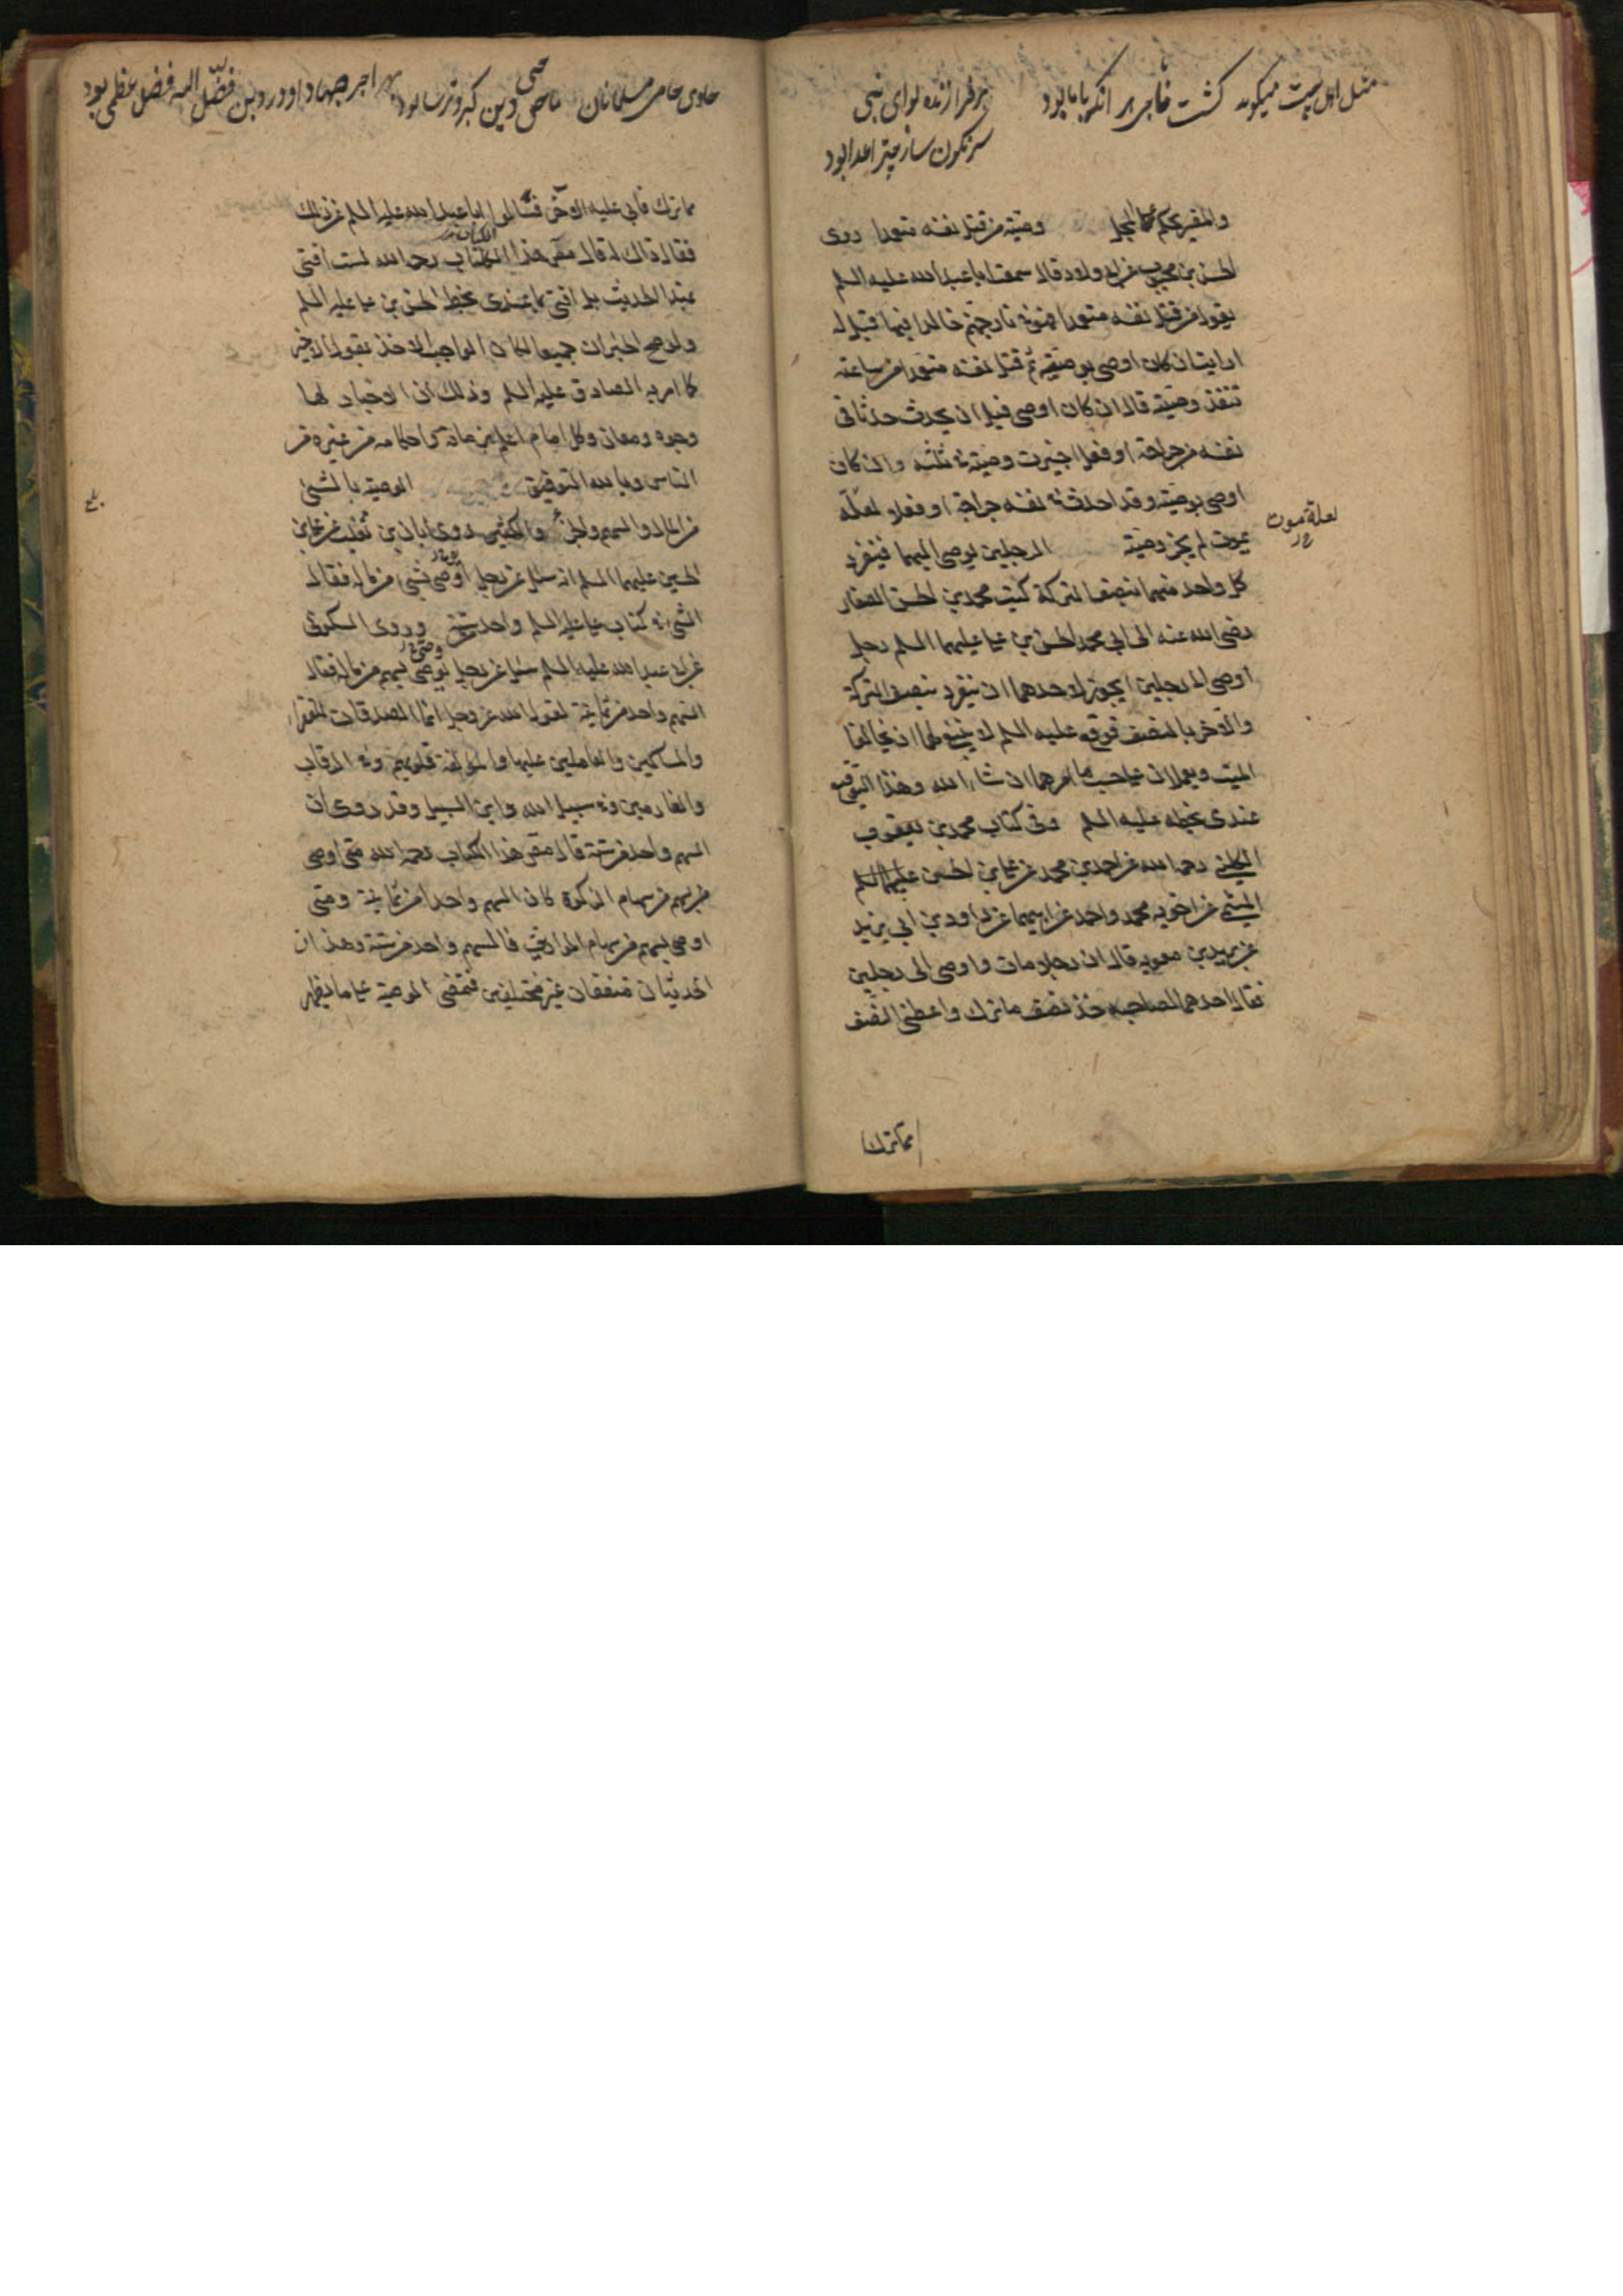 مثل اهل بیت میگوید کشت ظاهر بر آنکه باما بود
برفرازنده لوای نبی
سرنکون ساز چتر اعدا بود
والمفسر یحکم علی المجمل وصیته من قتل نفسه متعمدا روی
الحسن بن محبوب عن ابی ولاد قال سمعت ابا عبد الله علیه السلم
یقول من قتل نفسه متعمدا فهو فی نار جهنم خالدا فیها قیل له
ارایت ان کان اوصی بوصیة ثم قتل نفسه متعمدا من ساعته
تنفذ وصیته قال ان کان اوصی قبل ان یحدث حدثا فی
نفسه من جراحة او فعل اجیزت وصیته فی ثلثه وان کان
اوصی بوصیة وقد احدث فی نفسه جراحة او فعلا لعله
یموت لم یجز وصیته الرجلین یوصی الیهما فینفرد
لعلة موت
کل واحد منهما بنصف الترکة کتب محمد بن الحسن الصفار
رضی الله عنه الی ابی محمد الحسن بن علی علیهما السلم رجل
اوصی الی رجلین ایجوز لاحدهما ان ینفرد بنصف الترکة
والآخر بالنصف فوقع علیه السلم لا ینبغی لهما ان یخالفا
المیت ویعملان علی حسب ما امرهما ان شاء الله وهذا التوقیع
عندی بخطه علیه السلم وفی کتاب محمد بن یعقوب
الکلینی رحمه الله عن احمد بن محمد عن علی بن الحسن علیهما السلم
المیثمی عن اخویه محمد واحمد عن ابیهما عن داود بن ابی یزید
عن برید بن معویة قال ان رجلا مات واوصی الی رجلین
فقال احدهما لصاحبه خذ نصف ما ترک واعطنی النصف
مما ترک
حاوی حامی مسلمانان ماحی دین کبر وترسا بود
بهر اجر جهاد او در دین فضّل الله فضل عظمی بود
مما ترک فابی علیه الآخر فسألوا ابا عبد الله علیه السلم عن ذلک
فقال ذاک له قال مصنف هذا الکتاب رحمه الله لست افتی
بهذا الحدیث بل افتی بما عندی بخط الحسن بن علی علیه السلم
ولو صح الخبران جمیعا لکان الواجب الاخذ بقول الاخیر
کما امر به الصادق علیه السلم وذلک ان الاخبار لها
وجوه ومعان وکل امام اعلم بزمانه واحکامه من غیره من
الناس وبالله التوفیق الوصیة بالشیء
من المال والسهم والجزء والکثیر روی ابان بن تغلب عن علی بن
الحسین علیهما السلم انه سئل عن رجل اوصی بشیء من ماله فقال
الشیء فی کتاب علی علیه السلم واحد من ستة وروی السکونی
عن ابی عبد الله علیه السلم سئل عن رجل یوصی بسهم من ماله فقال
السهم واحد من ثمانیة لقول الله عز وجل انما الصدقات للفقراء
والمساکین والعاملین علیها والمؤلفة قلوبهم وفی الرقاب
والغارمین وفی سبیل الله وابن السبیل وقد روی ان
السهم واحد من ستة قال مصنف هذا الکتاب رحمه الله متی اوصی
بسهم من سهام الزکوة کان السهم واحدا من ثمانیة ومتی
اوصی بسهم من سهام المواریث فالسهم واحد من ستة وهذان
الحدیثان متفقان غیر مختلفین فتمضی الوصیة علی ما یظهر